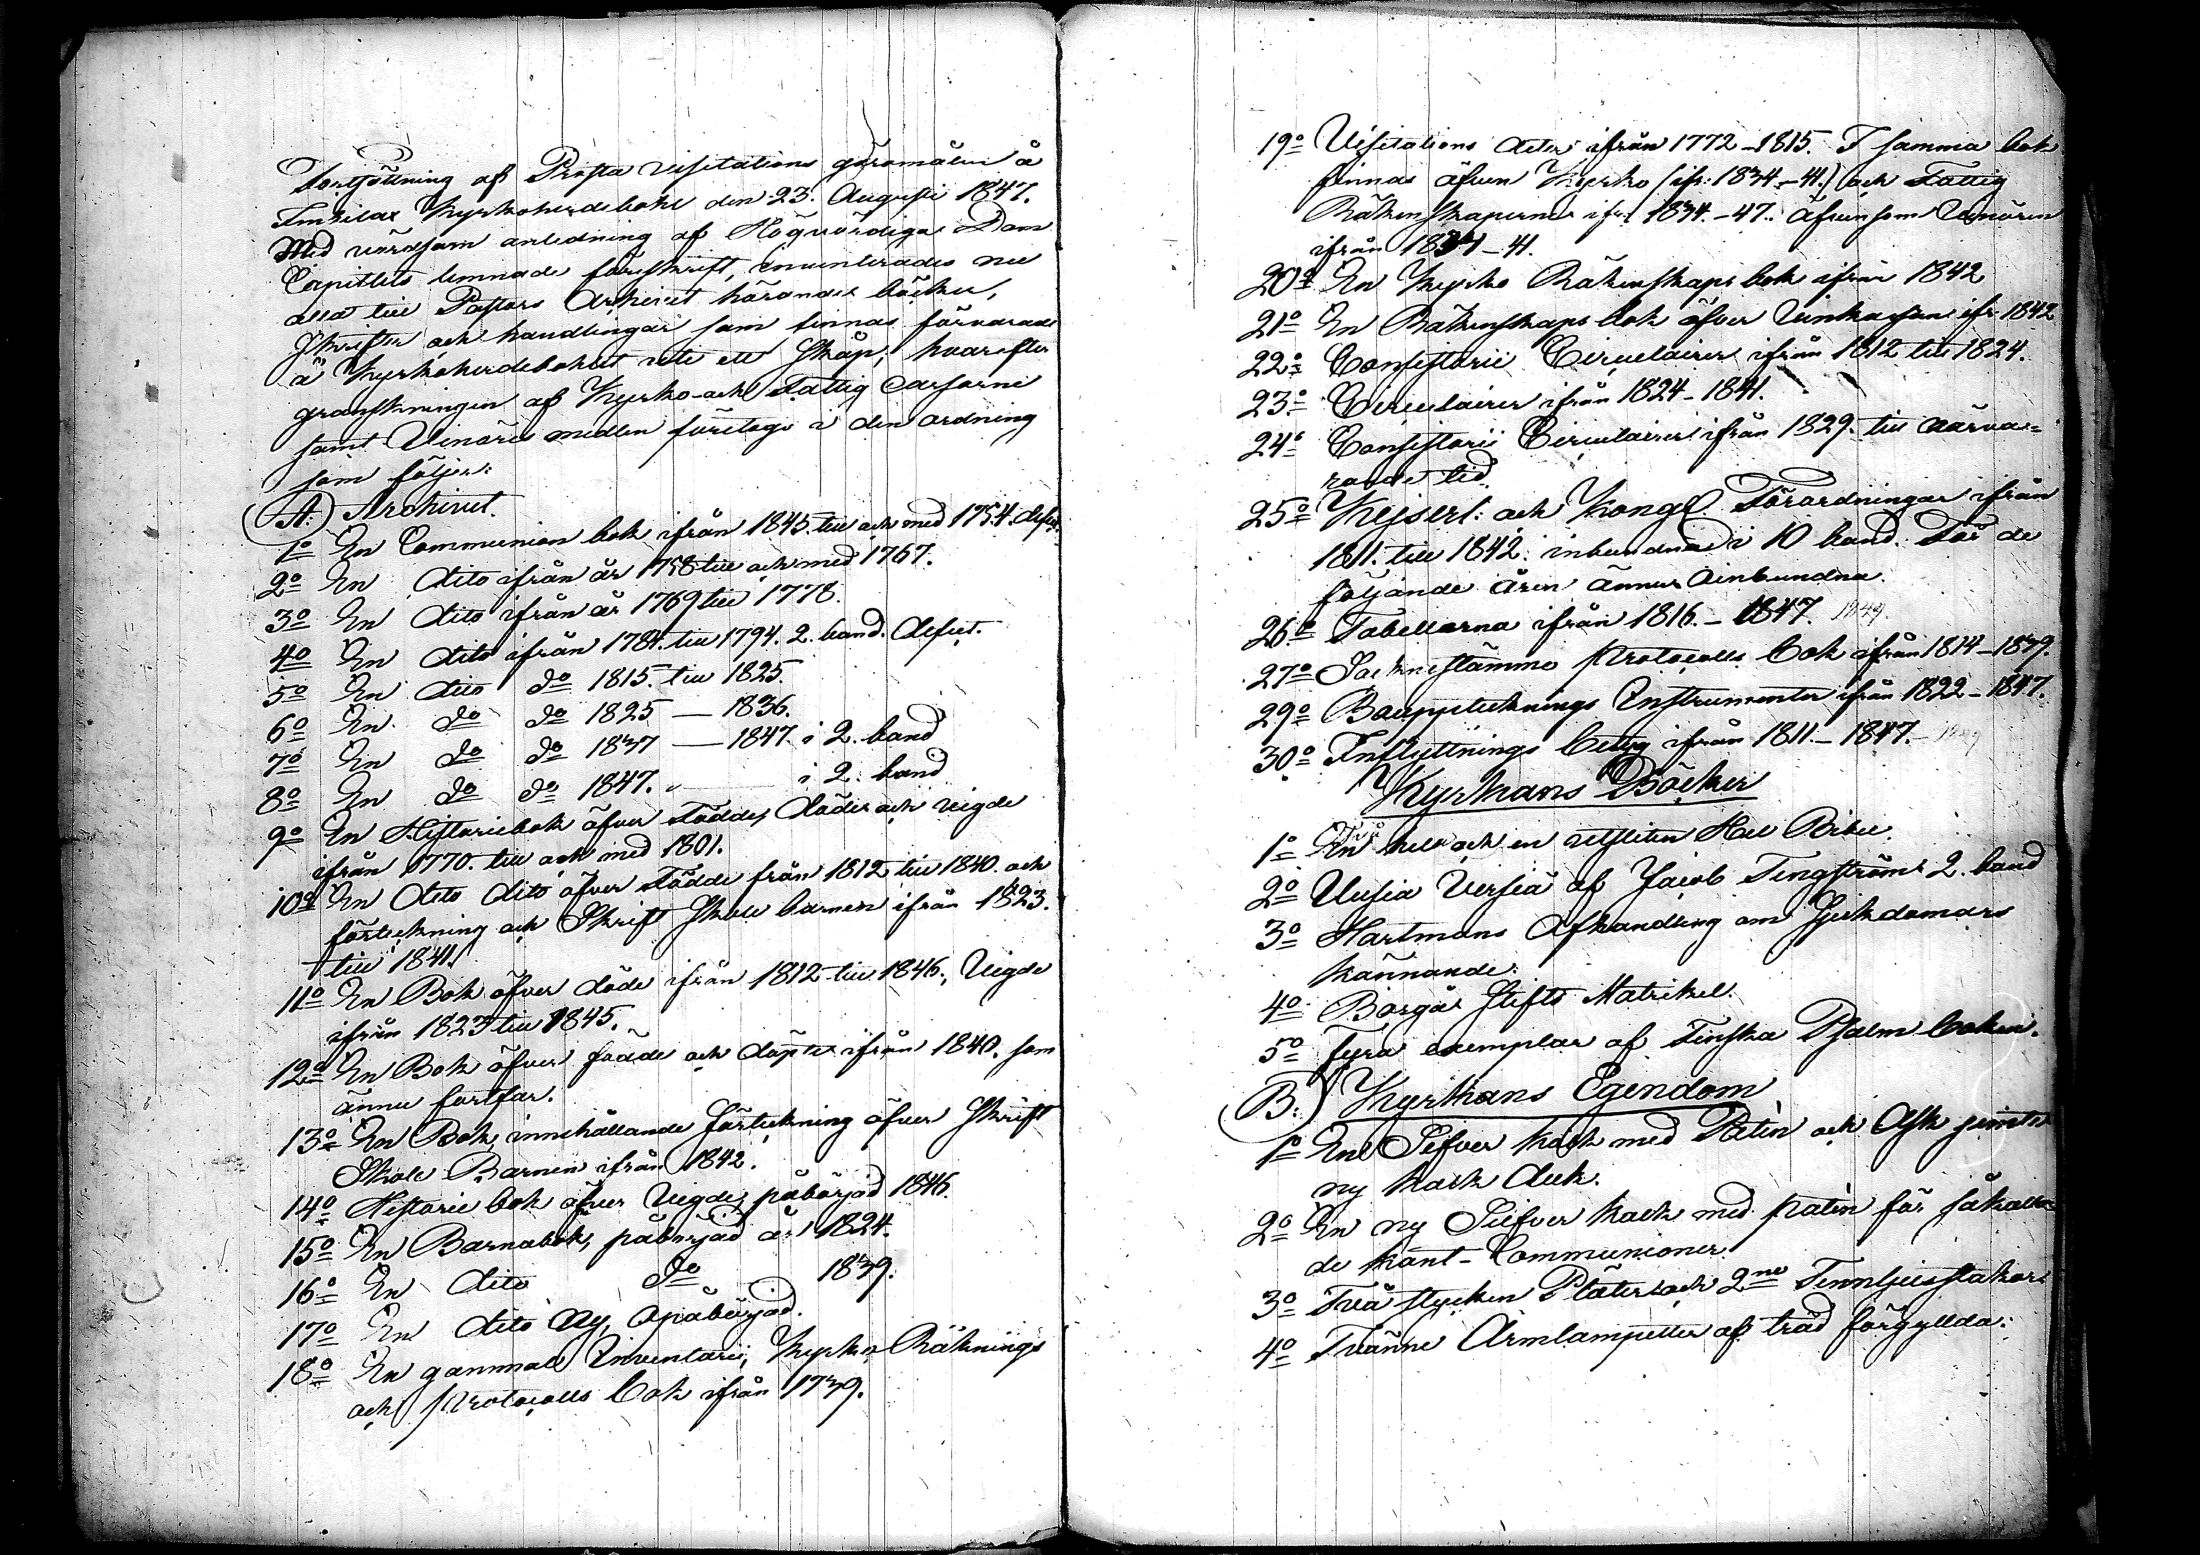 Fortsättning af Prosta visitations göromålen å
Imbilax Kyrkoherdebohl den 23. Augusti 1847.
Med vördsam anledning af Högvördiga Dom
Capitlets lemnade föreskrift, enumlerades nu
alla till Pastors Arkivet hörande böcker,
Skrifter och handlingar som finnas förvarade
å Kyrkoherdebohlet uti ett Skåp; hvarefter
granskningen af Kyrko- och Fattig Cassorne
samt Vinöres medlen företogs i den ordning
som följer:
A.) Archivet.
1o En Communion bok ifrån 1745. till och med 1754. defect.
2o En dito ifrån år 1758 till och med 1767.
3o En dito ifrån år 1769 till 1778.
4o En dito ifrån 1784. till 1794. 2. band. defect.
5o En dito do 1815. till 1825.
6o En do do 1825 — 1836.
7o En do do 1837 — 1847. i 2. band
8o En do do 1847. " — i 2. band
9o En Historiebok öfver Födde, döde och vigde
ifrån 1770. till och med 1801.
10o En dito dito öfver Födde från 1812 till 1840. och
förteckning och Skrift Skole barnen ifrån 1823.
till 1841.
11o En Bok öfver döde ifrån 1812 till 1846; Vigde
ifrån 1823 till 1845.
12o En Bok öfver födde och döpte ifrån 1840. som
ännu fortfar.
13o En Bok, innehållande förteckning öfver Skrift
Skole Barnen ifrån 1842.
14o Historie bok öfver Vigde, påbörjad 1846.
15o En Barnabok, påbörjad år 1824.
16o En dito do 1839.
17o En dito Ny, opåbörjad.
18o En gammal Inventarii, Kyrko, Räknings
och Protocolls bok ifrån 1739.
19o Visitations Acter ifrån 1772–1815. I samma bok
finnas äfven Kyrko (ifr: 1834–41.) och Fattig
Räkenskaperne ifr: 1834.–47. Äfvensom Vinören
ifrån 1837–41.
20o En Kyrko Räkenskaps bok ifrån 1842
21o En Räkenskaps bok öfver Vinkassan ifr: 1842
22o Consistorii Circulairer ifrån 1812 till 1824.
23o Circulairer ifrån 1824–1841.
24o Consistorii Circulairer ifrån 1829. till närva=
rande tid.
25o Kejserl: och Kongl. Förordningar ifrån
1811. till 1842. inbundna i 10 band. För de
följande åren ännu oinbundna.
26o Tabellerna ifrån 1816.–1847. 1849.
27o Socknestämmo Protocolls bok ifrån 1814–1839.
29o Baupptecknings Instrumenter ifrån 1822–1847.
30o Inflyttnings betyg ifrån 1811.–1847. 1849
Kyrkans Böcker
1o En hel och en utsliten Hel Bibel.
2o Uusia Versiä af Jacob Tengström 2. band
3o Hartmans Afhandling om Sjukdomars
kännande.
4o Borgå Stifts Matrikel.
5o fyra exemplar af Finska Psalm boken.
B.) Kyrkans Egendom
1o En Silfver kalk med Patén och Ask jemte
ny kalk duk.
2o En ny Silfver kalk med patén för såkalla=
de kant-Communioner.
3o Två stycken Plåter och 2ne Tennljusstakar
4o Tvänne Armlampetter af träd förgyllda.